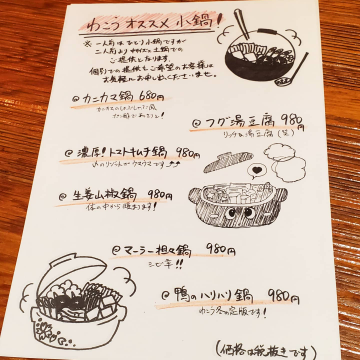 わこうオススメ小鍋!
※ 一人前はひとり小鍋ですが
二人前よりサイズと土鍋での
ご提供となります。
個別での提供もご希望のお客様は
お気軽にお申し出くださいませ。
◎カニカマ鍋 680円
◎フグ湯豆腐 980円
リッチな湯豆腐(笑)
◎濃厚!トマトキムチ鍋 980円
◎生姜山椒鍋 980円
体の中から温まります!
◎マーラー担々鍋 980円
シビ辛!!
◎鴨のハリハリ鍋 980円
わこう冬の定番です!
(価格は税抜きです)